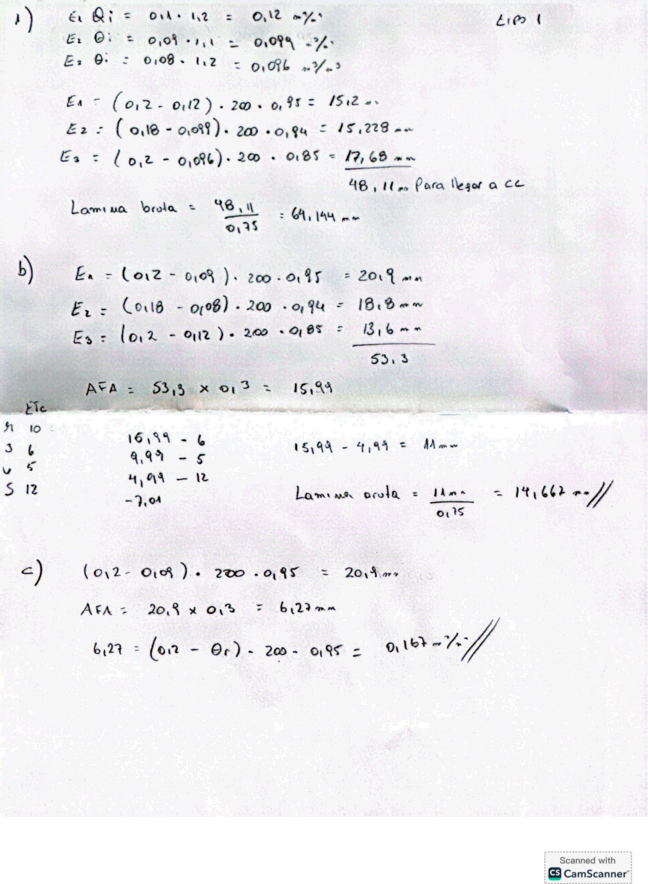 1) E1 θi = 0,1 · 1,2 = 0,12 m³/m³ tipo 1
E2 θi = 0,09 · 1,1 = 0,099 m³/m³
E3 θi = 0,08 · 1,2 = 0,096 m³/m³
E1 = (0,2 - 0,12) · 200 · 0,95 = 15,2 mm
E2 = (0,18 - 0,099) · 200 · 0,94 = 15,228 mm
E3 = (0,2 - 0,096) · 200 · 0,85 = 17,68 mm
48,11 mm Para llegar a CC
Lamina bruta = 48,11 / 0,75 = 64,144 mm
b) E1 = (0,2 - 0,09) · 200 · 0,95 = 20,9 mm
E2 = (0,18 - 0,08) · 200 · 0,94 = 18,8 mm
E3 = (0,2 - 0,12) · 200 · 0,85 = 13,6 mm
53,3
AFA = 53,3 x 0,3 = 15,99
ETc
M 10
J 6 15,99 - 6
V 5 9,99 - 5 15,99 - 4,99 = 11 mm
S 12 4,99 - 12
-7,01 Lamina bruta = 11 mm / 0,75 = 14,667 mm //
c) (0,2 - 0,09) · 200 · 0,95 = 20,9 mm
AFA = 20,9 x 0,3 = 6,27 mm
6,27 = (0,2 - θr) · 200 · 0,95 = 0,167 m³/m³ //
Scanned with
CS CamScanner